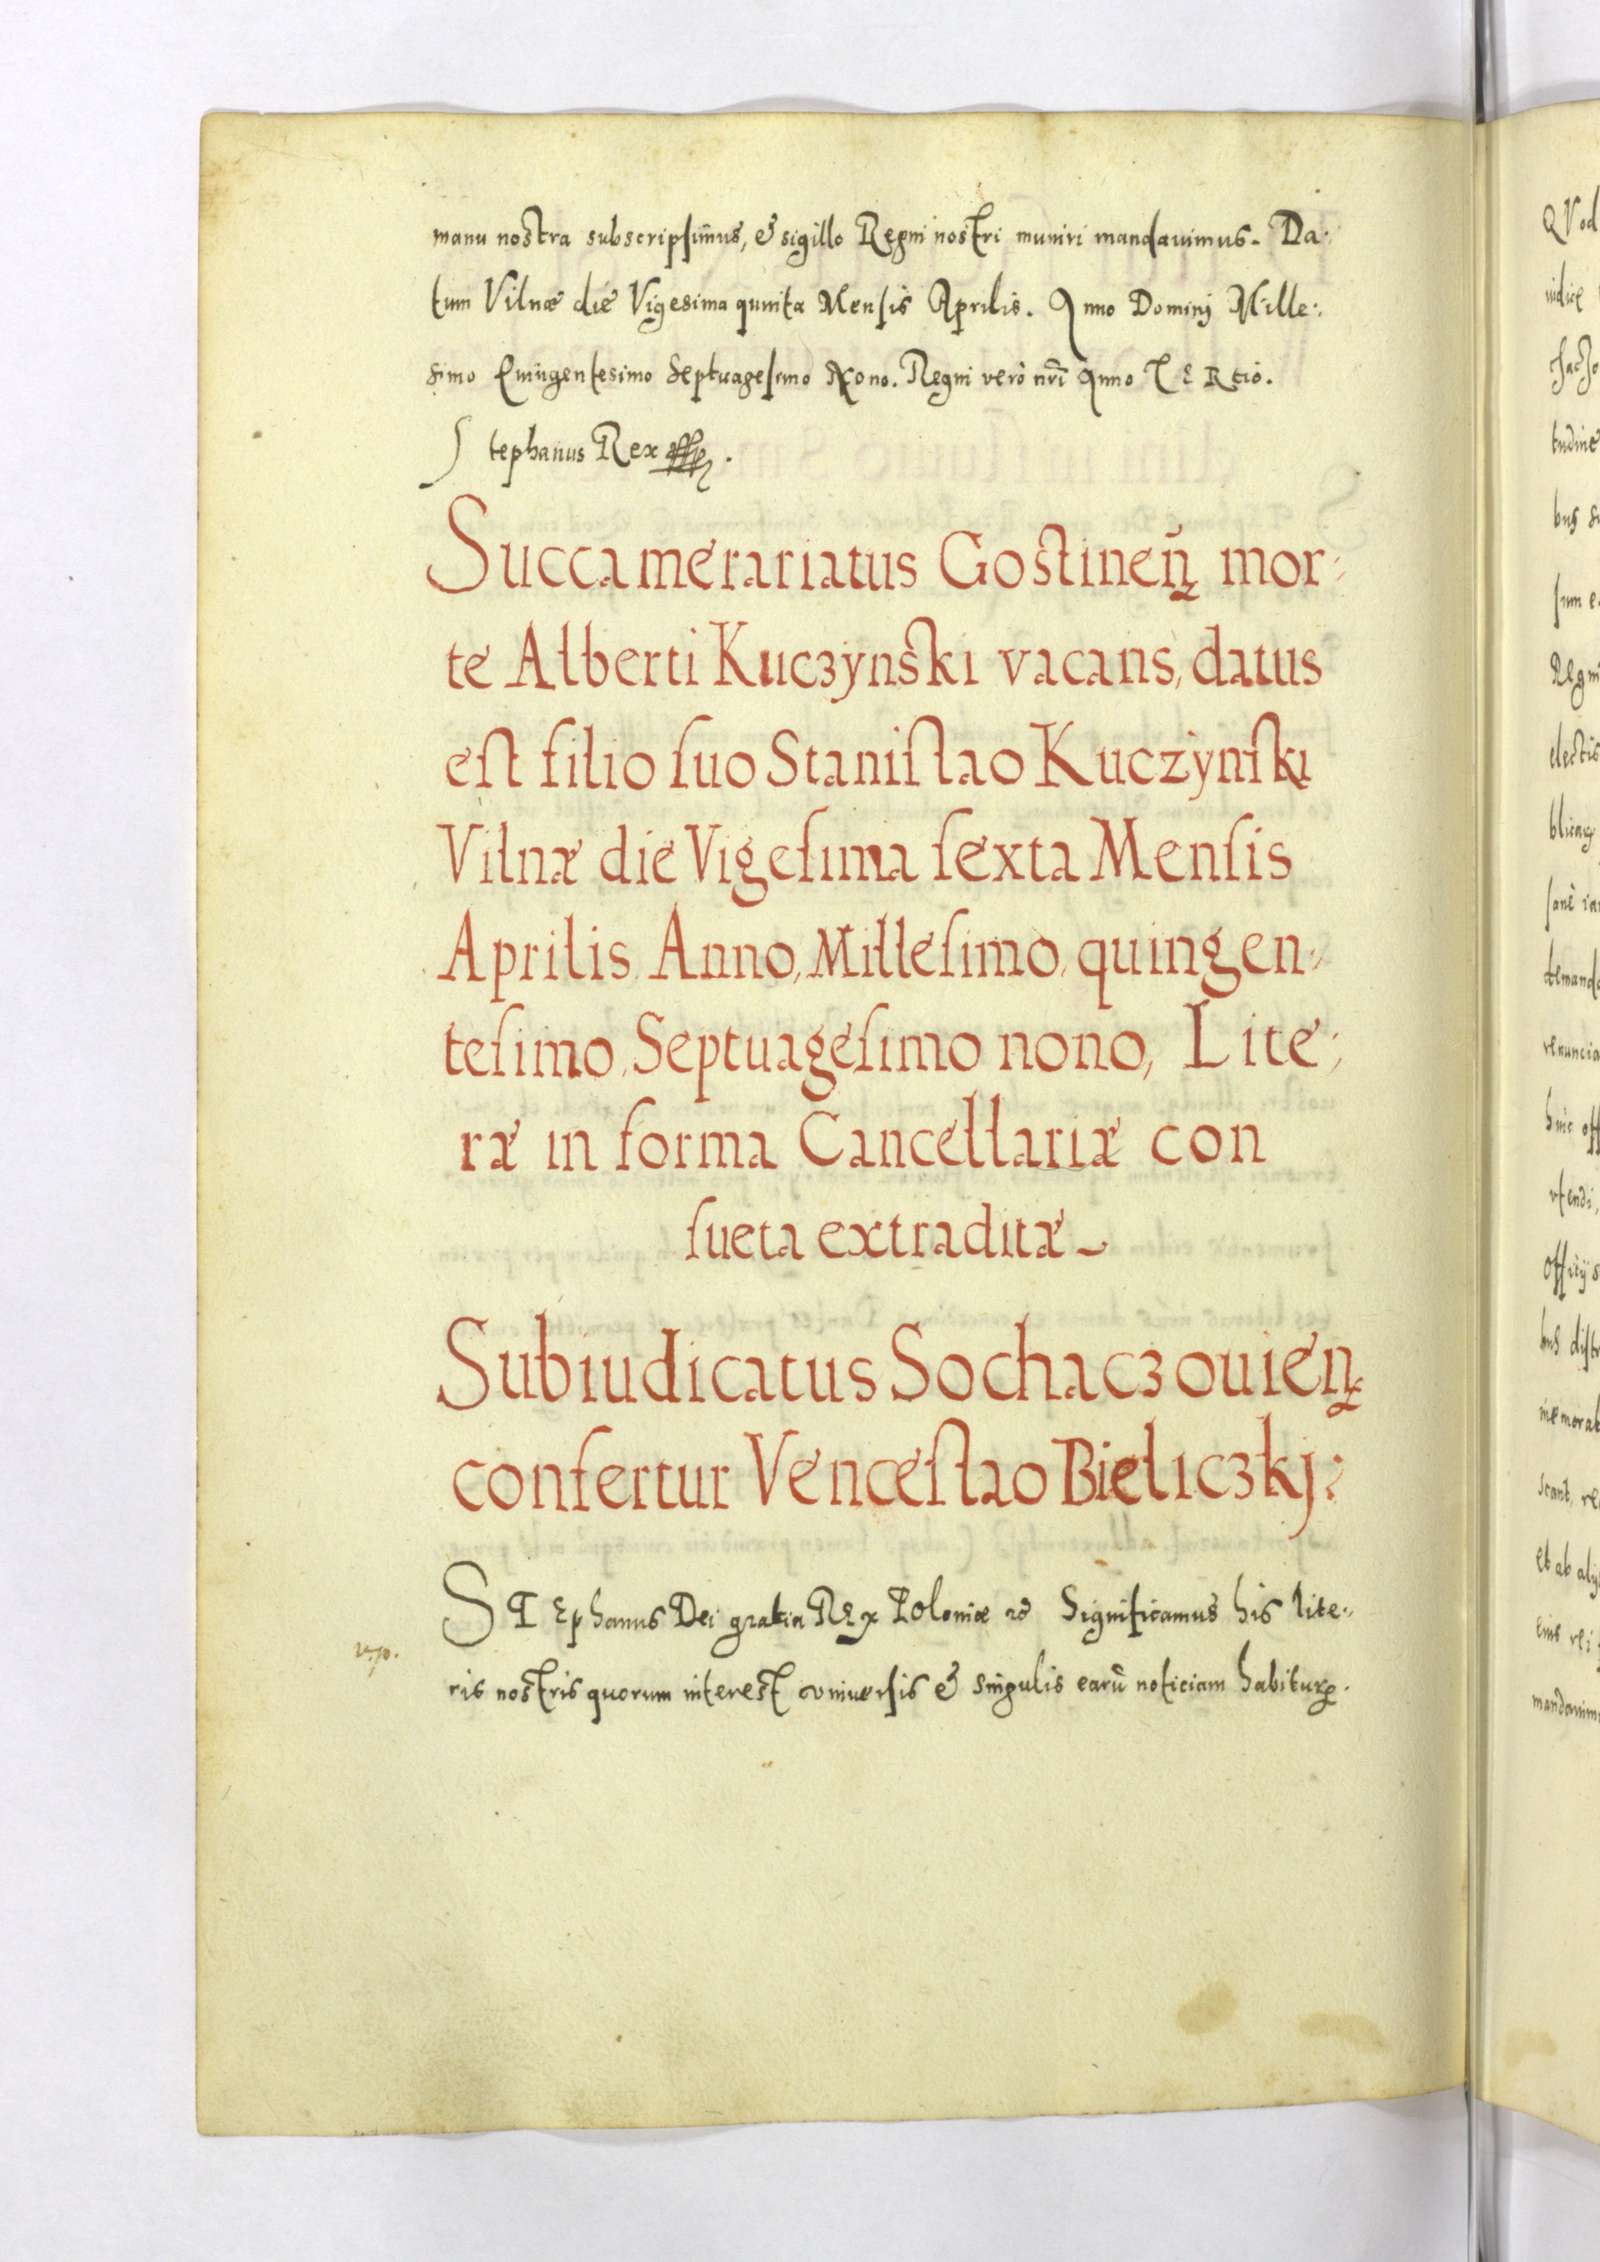 manu nostra subscripsimus, & sigillo Regni nostri muniri mandavimus. Da:
tum Vilnæ die Vigesima quinta Mensis Aprilis. Anno Dominj Mille:
simo Quingentesimo Septuagesimo Nono. Regni verò nrĩ Anno TERtio.
Stephanus Rex
Succamerariatus Gostineñ mor:
te Alberti Kuczynski vacans, datus
est filio suo Stanislao Kuczynski
Vilnæ die Vigesima sexta Mensis
Aprilis Anno, Millesimo, quingen:
tesimo, Septuagesimo nono, Lite:
ræ in forma Cancellariæ con
sueta extraditæ
Subiudicatus Sochaczouień
confertur Venceslao Bieliczkj:
STEphanus Dei gratia REx Poloniæ &c Significamus his lite:
ris nostris quorum interest vniversis & singulis earũ noticiam habitur.
QVod
iudice
chaczo
tudine
bus
sum e
Regni
electis
blicar
sanè
demand
renuncia
huic off
vtendi,
officijs
bus distr
memorat
scant, re
et ab alijs
eius rei
mandauim